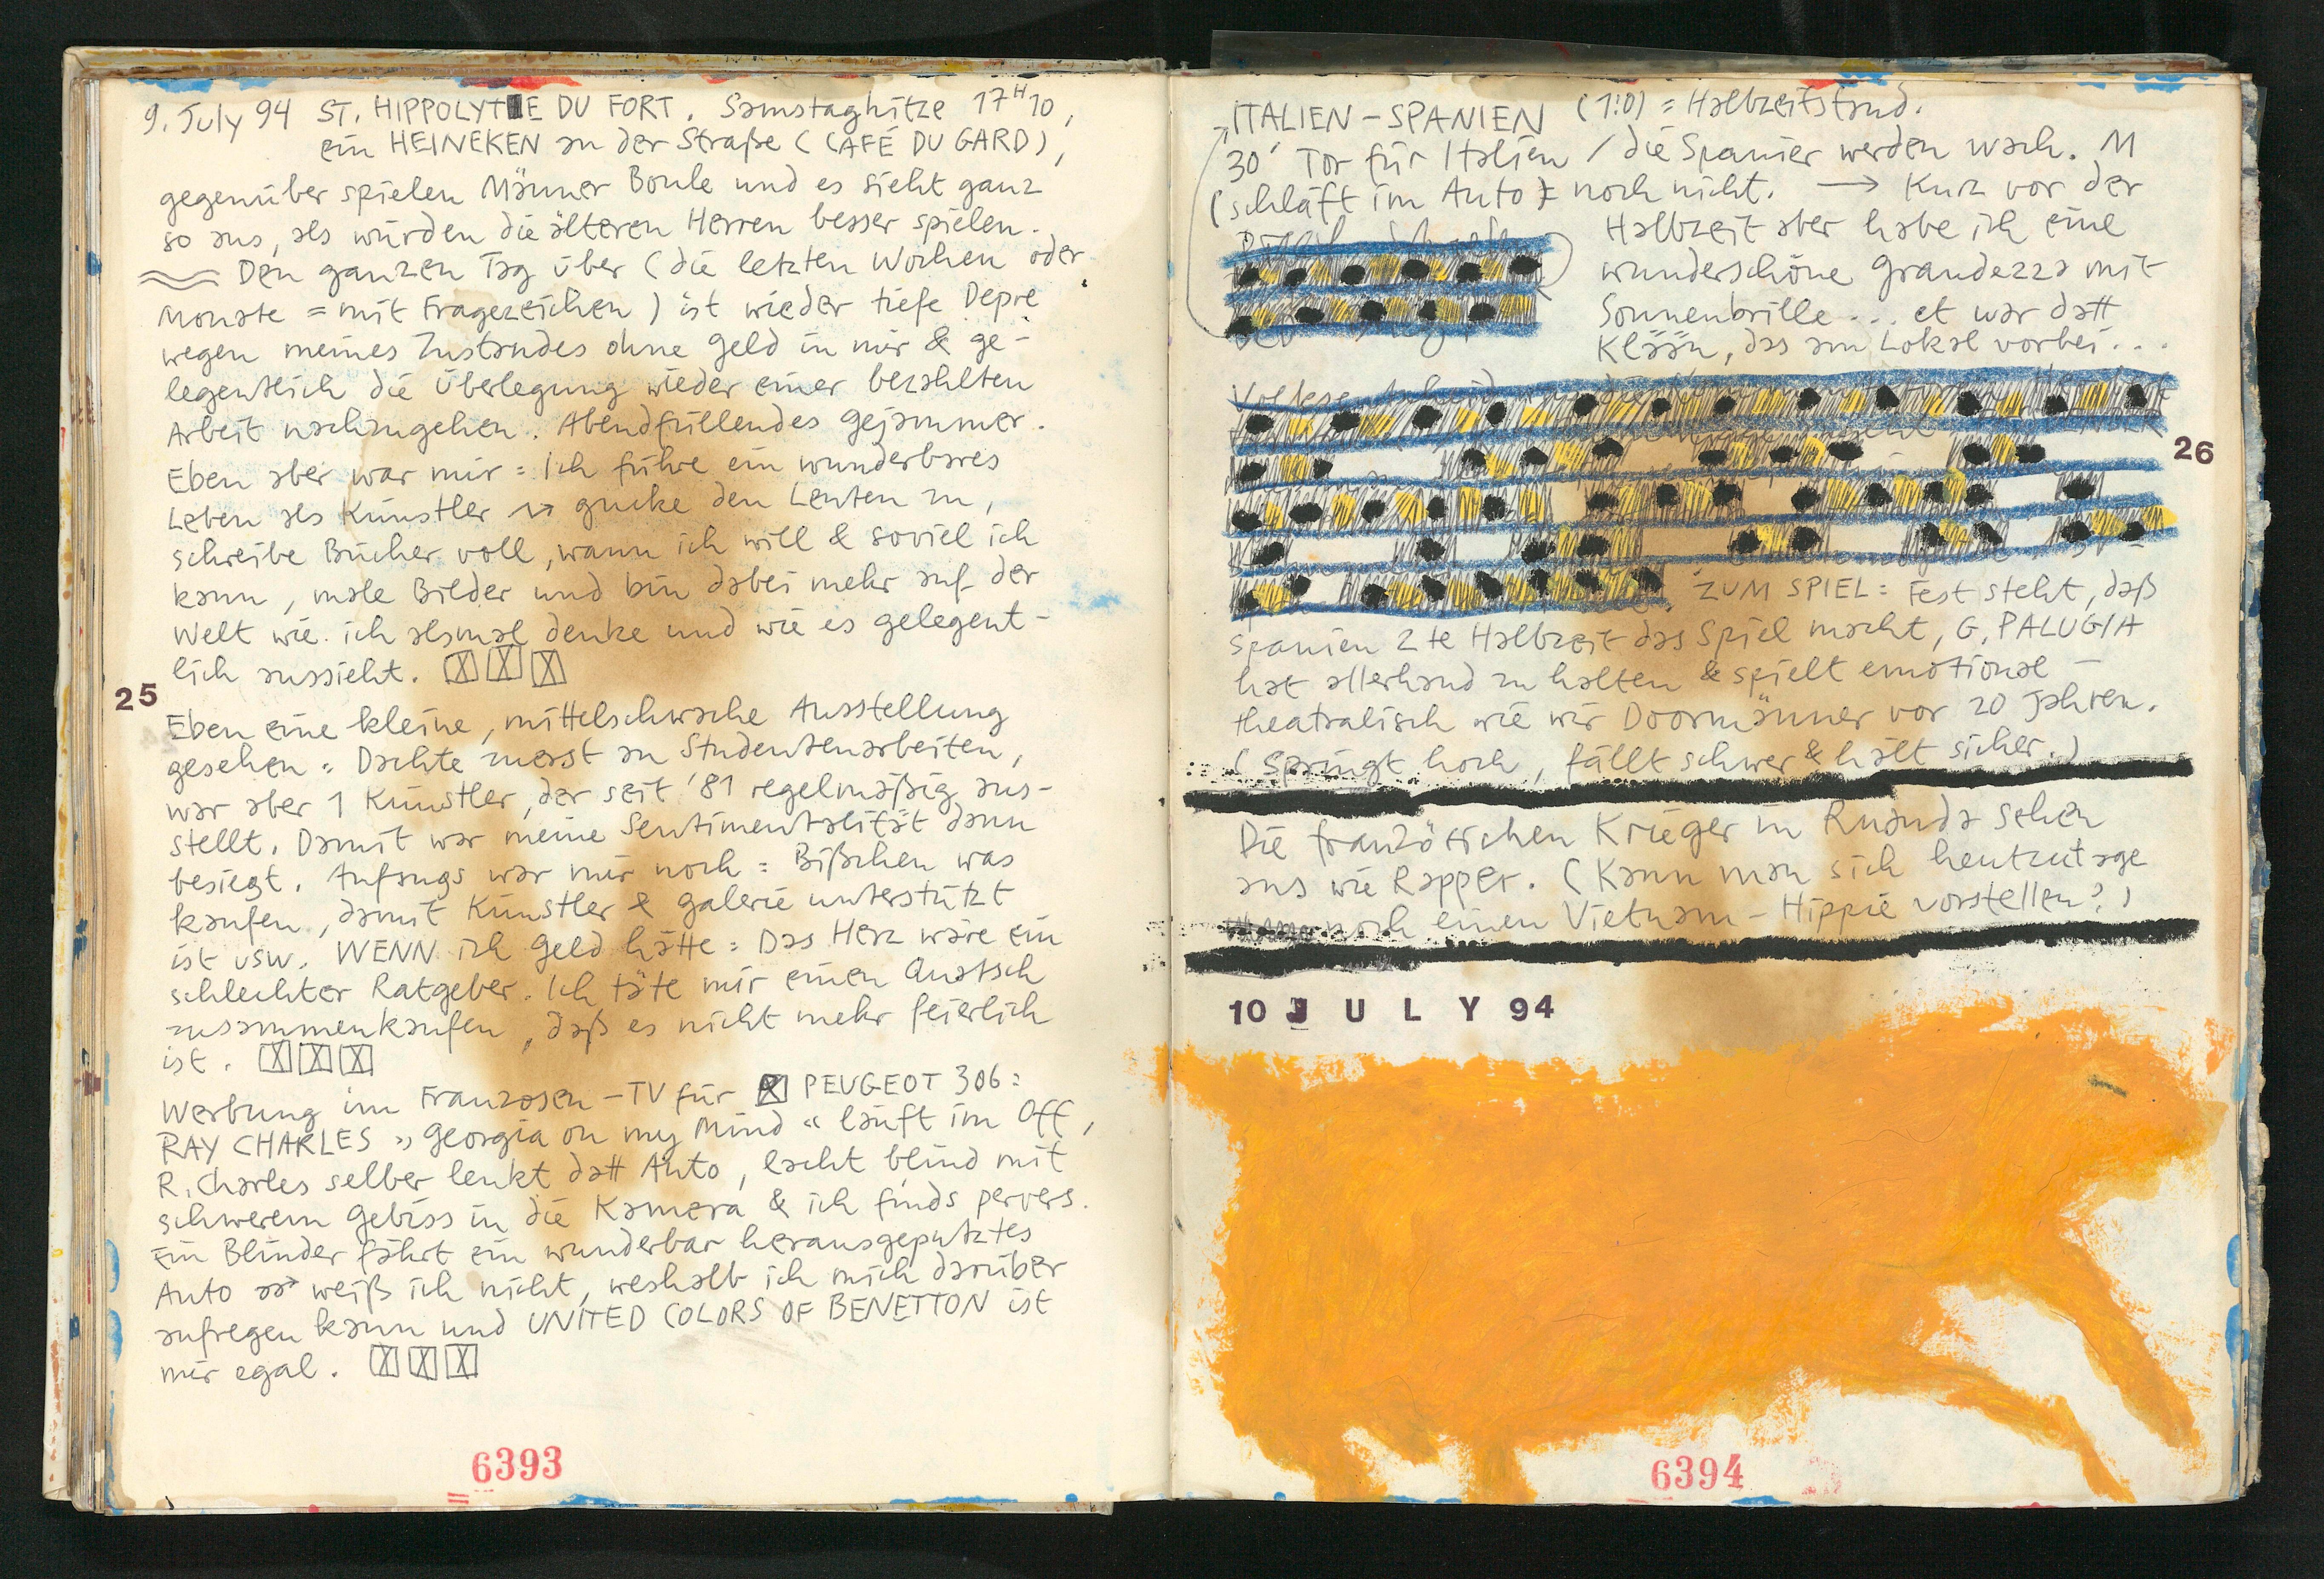 9. July 94 ST. HIPPOLYTE DU FORT. Samstaghitze 17H10,
ein HEINEKEN an der Straße (CAFÉ DU GARD),
gegenüber spielen Männer Boule und es sieht ganz
so aus, als würden die älteren Herren besser spielen.
Den ganzen Tag über (die letzten Wochen oder
Monate = mit Fragezeichen) ist wieder tiefe Depre
wegen meines Zustandes ohne Geld in mir & ge-
legentlich die Überlegung wieder einer bezahlten
Arbeit nachzugehen. Abendfüllendes Gejammer.
Eben aber war mir = Ich führe ein wunderbares
Leben als Künstler → gucke den Leuten zu,
schreibe Bücher voll, wann ich will & soviel ich
kann, male Bilder und bin dabei mehr auf der
Welt wie ich alsmal denke und wie es gelegent-
lich aussieht. X X X
25
Eben eine kleine, mittelschwache Ausstellung
gesehen = Dachte zuerst an Studentenarbeiten,
war aber 1 Künstler, der seit '81 regelmäßig aus-
stellt. Damit war meine Sentimentalität dann
besiegt. Anfangs war mir noch = Bißchen was
kaufen, damit Künstler & Galerie unterstützt
ist usw. WENN ich Geld hätte = Das Herz wäre ein
schlechter Ratgeber. Ich täte mir einen Quatsch
zusammenkaufen, daß es nicht mehr feierlich
ist. X X X
Werbung im Franzosen-TV für PEUGEOT 306:
RAY CHARLES »Georgia on my Mind« läuft im Off,
R. Charles selber lenkt datt Auto, lacht blind mit
schwerem Gebiss in die Kamera & ich finds pervers.
Ein Blinder fährt ein wunderbar herausgeputztes
Auto → weiß ich nicht, weshalb ich mich darüber
aufregen kann und UNITED COLORS OF BENETTON ist
mir egal. X X X
6393
ITALIEN-SPANIEN (1:0) = Halbzeitstand.
30' Tor für Italien / die Spanier werden wach. M
(schläft im Auto) noch nicht. → Kurz vor der
Halbzeit aber habe ich eine
wunderschöne Grandezza mit
Sonnenbrille ... et war datt
Klään, das am Lokal vorbei...
26
ZUM SPIEL = Fest steht, daß
Spanien 2te Halbzeit das Spiel macht, G. PALUGIA
hat allerhand zu halten & spielt emotional -
theatralisch wie wir Doormänner vor 20 Jahren.
(Springt hoch, fällt schwer & hält sicher.)
Die französischen Krieger in Ruanda sehen
aus wie Rapper. (Kann man sich heutzutage
noch einen Vietnam-Hippie vorstellen?)
10 JULY 94
6394